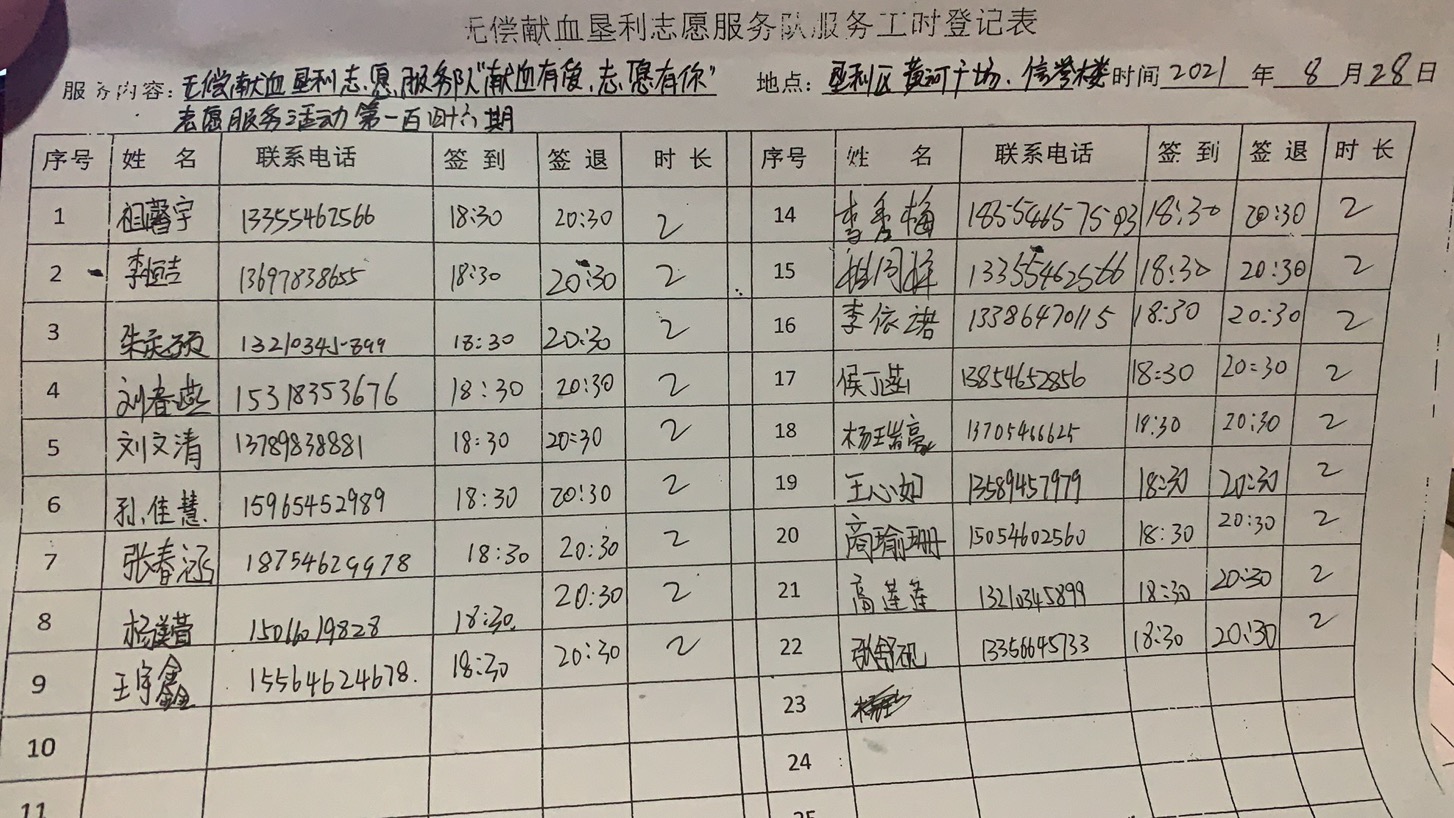 无偿献血垦利志愿服务队服务工时登记表
服务内容：无偿献血垦利志愿服务队“献血有爱，志愿有你” 地点：垦利区黄河广场、信誉楼 时间 2021 年 8 月 28 日
志愿服务活动第一百四十六期
序号 姓 名 联系电话 签 到 签 退 时 长 序号 姓 名 联系电话 签 到 签 退 时 长
1 祖馨宇 13355462566 18:30 20:30 2 14 李秀梅 18554657593 18:30 20:30 2
2 李恒吉 13697838655 18:30 20:30 2 15 13355462566 18:30 20:30 2
3 13210345899 18:30 20:30 2 16 李依诺 13386470115 18:30 20:30 2
4 刘春燕 15318353676 18:30 20:30 2 17 13854652856 18:30 20:30 2
5 刘文清 13789838881 18:30 20:30 2 18 13705466625 18:30 20:30 2
6 孙佳慧 15965452989 18:30 20:30 2 19 王心如 13589457979 18:30 20:30 2
7 张春涵 18754629978 18:30 20:30 2 20 商瑜珊 15054602560 18:30 20:30 2
8 15066019828 18:30 20:30 2 21 高莲莲 13210345899 18:30 20:30 2
9 王宇鑫 15564624678 18:30 20:30 2 22 13356645733 18:30 20:30 2
10 23
11 24
25